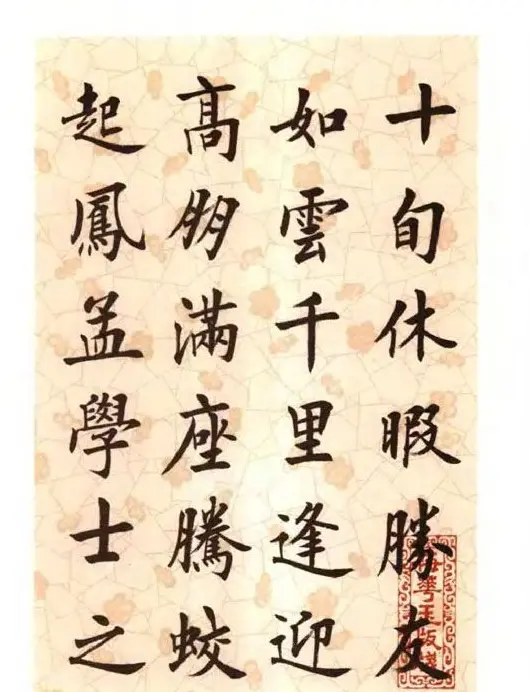 十旬休暇勝友
如雲千里逢迎
高朋滿座騰蛟
起鳳孟學士之